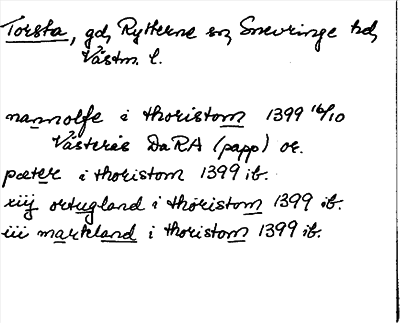 Torsta, gd, Rytterne sn, Snevringe hd,
Västm. l.
nannolfe i thoristom 1399 16/10
Västerås DaRA (papp) or.
pæter i thoristom 1399 ib.
xiij ortugland i thoristom 1399 ib.
iii markland i thoristom 1399 ib.